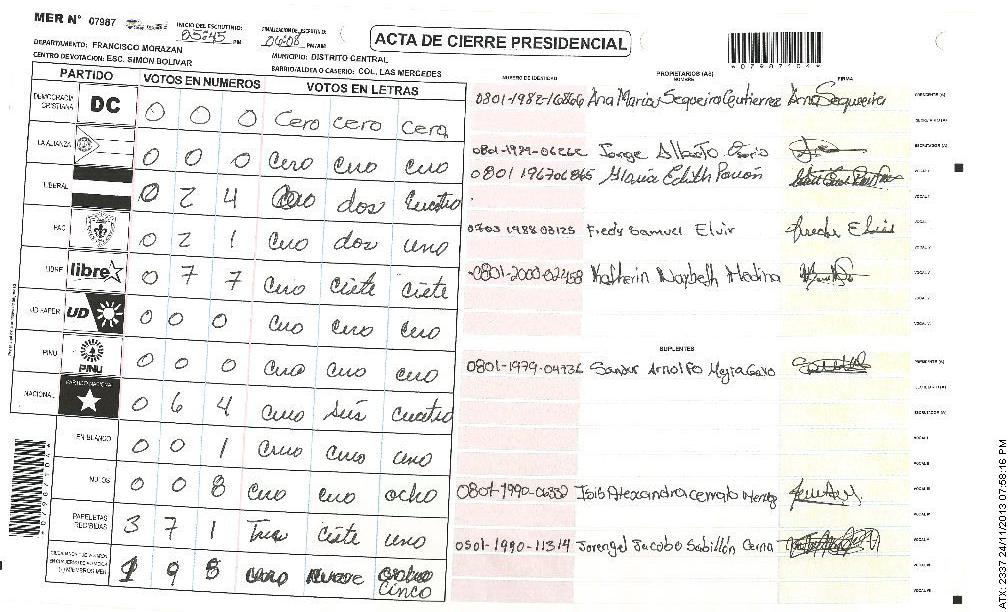 MER N° 07987
INICIO DEL ESCRUTINIO: 05:45 PM
FINALIZACION DE ESCRUTINIO: 06:08 PM/AM
ACTA DE CIERRE PRESIDENCIAL
DEPARTAMENTO: FRANCISCO MORAZAN
MUNICIPIO: DISTRITO CENTRAL
CENTRO DE VOTACION: ESC. SIMON BOLIVAR
BARRIO/ALDEA O CASERIO: COL. LAS MERCEDES
PARTIDO VOTOS EN NUMEROS VOTOS EN LETRAS
DEMOCRACIA CRISTIANA DC 0 0 0 Cero cero cero
LA ALIANZA 0 0 0 Cero cero cero
LIBERAL 0 2 4 Cero dos cuatro
PAC 0 2 1 Cero dos uno
LIBRE libre 0 7 7 Cero Ciete Ciete
UD-FAPER UD 0 0 0 Cero Cero Cero
PINU PINU 0 0 0 Cero Cero Cero
NACIONAL PARTIDO NACIONAL 0 6 4 Cero Seis cuatro
EN BLANCO 0 0 1 Cero Cero uno
NULOS 0 0 8 Cero Cero ocho
PAPELETAS RECIBIDAS 3 7 1 Tres Ciete uno
1 9 5 Nueve Cinco
NUMERO DE IDENTIDAD
PROPIETARIOS (AS)
NOMBRE
FIRMA
0801-1982-16866 Ana Maria Sequeira Gutierrez Ana Sequeira PRESIDENTE (A)
SECRETARIO (A)
0801-1989-06262 Jorge Alberto Osorio ESCRUTADOR (A)
0801 196706865 Gloria Edith Pavon VOCAL I
VOCAL II
0703 1988 03125 Fredy Samuel Elvir Fredy Elvir VOCAL III
VOCAL IV
0801-2000-02458 Katherin Nazbeth Medina VOCAL V
SUPLENTES
0801-1979-04736 Sandur Arnolfo Mejia PRESIDENTE (A)
SECRETARIO (A)
ESCRUTADOR (A)
VOCAL I
VOCAL II
0801-1990-06332 Isis Alexandra Cerrato VOCAL III
VOCAL IV
0501-1990-11314 Jorengel Jacobo Sabillón Cerna VOCAL V
ATX: 2337 24/11/2013 07:58:16 PM